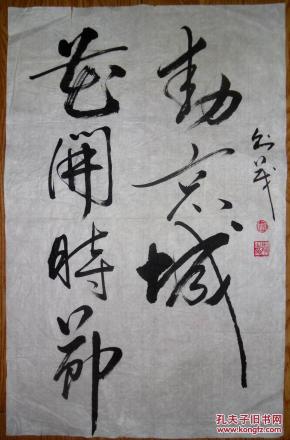 花開時節
動京城
孔夫子旧书网
www.kongfz.com